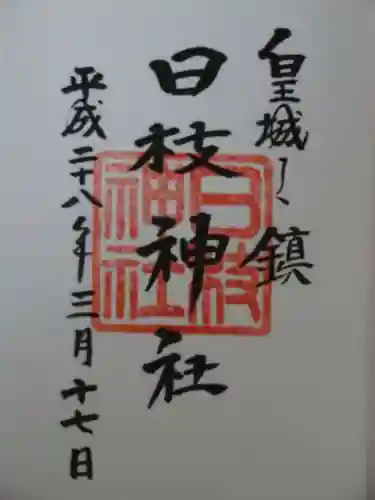 皇城之鎮
日枝神社
平成二十八年三月十七日
日枝
神社